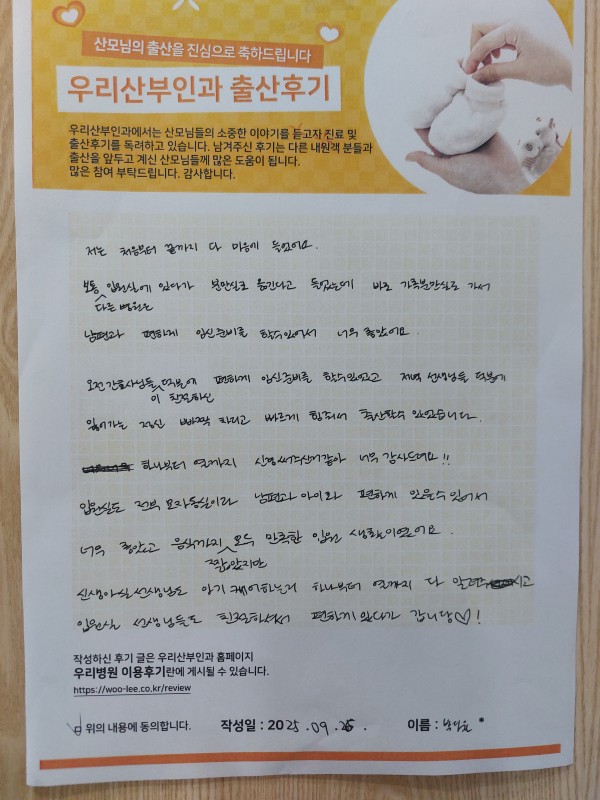 산모님의 출산을 진심으로 축하드립니다
우리산부인과 출산후기
우리산부인과에서는 산모님들의 소중한 이야기를 듣고자 진료 및
출산후기를 독려하고 있습니다. 남겨주신 후기는 다른 내원객 분들과
출산을 앞두고 계신 산모님들께 많은 도움이 됩니다.
많은 참여 부탁드립니다. 감사합니다.
저는 처음부터 끝까지 다 마음에 들었어요.
보통 입원실에 있다가 분만실로 옮긴다고 들었는데 바로 가족분만실로 가서
다른 병원은
남편과 편하게 임신준비를 할수있어서 너무 좋았어요.
오전 간호사님들 덕분에 편하게 임신준비를 할수있었고 저녁 선생님들 덕분에
이 친절하신
잃어가는 정신 빠짝 차리고 빠르게 힘줘서 출산할수 있었습니다.
하나부터 열까지 신경써주신거같아 너무 감사드려요!!
입원실도 전부 모자동실이라 남편과 아이와 편하게 있을수 있어서
너무 좋았고 음식까지 모두 만족한 입원 생활이였어요.
짧았지만
신생아실 선생님도 아기 케어하는거 하나부터 열까지 다 알려주시고
입원실 선생님들도 친절하셔서 편하게 있다가 갑니당♡!
작성하신 후기 글은 우리산부인과 홈페이지
우리병원 이용후기란에 게시될 수 있습니다.
https://woo-lee.co.kr/review
위의 내용에 동의합니다. 작성일 : 2025.09.25. 이름 : *